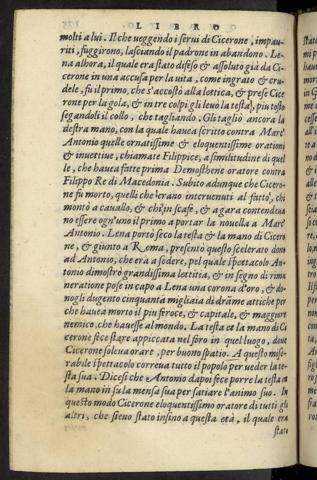 LIBRO
molti a lui. Il che veggendo i serui di Cicerone, impau-
riti, fuggirono, lasciando il padrone in abandono. Le-
na alhora, il quale era stato difeso & assoluto già da Ci-
cerone in una accusa per la vita, come ingrato & cru-
dele, fu il primo, che s'accostò alla lottica, & prese Cice
rone per la gola, & in tre colpi gli levò la testa, piu tosto
segandoli il collo, che tagliando. Gli tagliò ancora la
destra mano, con la quale haueua scritto contra Marc'
Antonio quelle ornatissime & eloquentissime orationi
& inuettiue, chiamate Filippice, a similitudine di quel
le, che haueua fatte prima Demosthene oratore contra
Filippo Re di Macedonia. Subito adunque che Cicero-
ne fu morto, quelli che erano interuenuti al fatto, chi
montò a cauallo, & chi in scafe, & a gara contendeua
no essere ogn'uno il primo a portar la nouella a Marc'
Antonio. Lena portò seco la testa & la mano di Cicero
ne, & giunto a Roma, presentò questo scelerato dono
ad Antonio, che era a sedere, pel quale spettacolo An-
tonio dimostrò grandissima letitia, & in segno di rimu
neratione pose in capo a Lena una corona d'oro, & do-
nogli dugento cinquanta migliaia di dramme attiche per
che haueua morto il piu feroce, & capitale, & maggior
nemico, che hauesse al mondo. La testa et la mano di Ci
cerone fece stare appiccata nel foro in quel luogo, doue
Cicerone soleua orare, per buono spatio. A questo mise-
rabile spettacolo correua tutto il popolo per ueder la te-
sta sua. Dicesi che Antonio dapoi fece porre la testa et
la mano in su la mensa sua per satiare l'animo suo. In
questo modo Cicerone eloquentissimo oratore di tutti gli
altri, che sieno stato insino a questa età, il quale era
stato